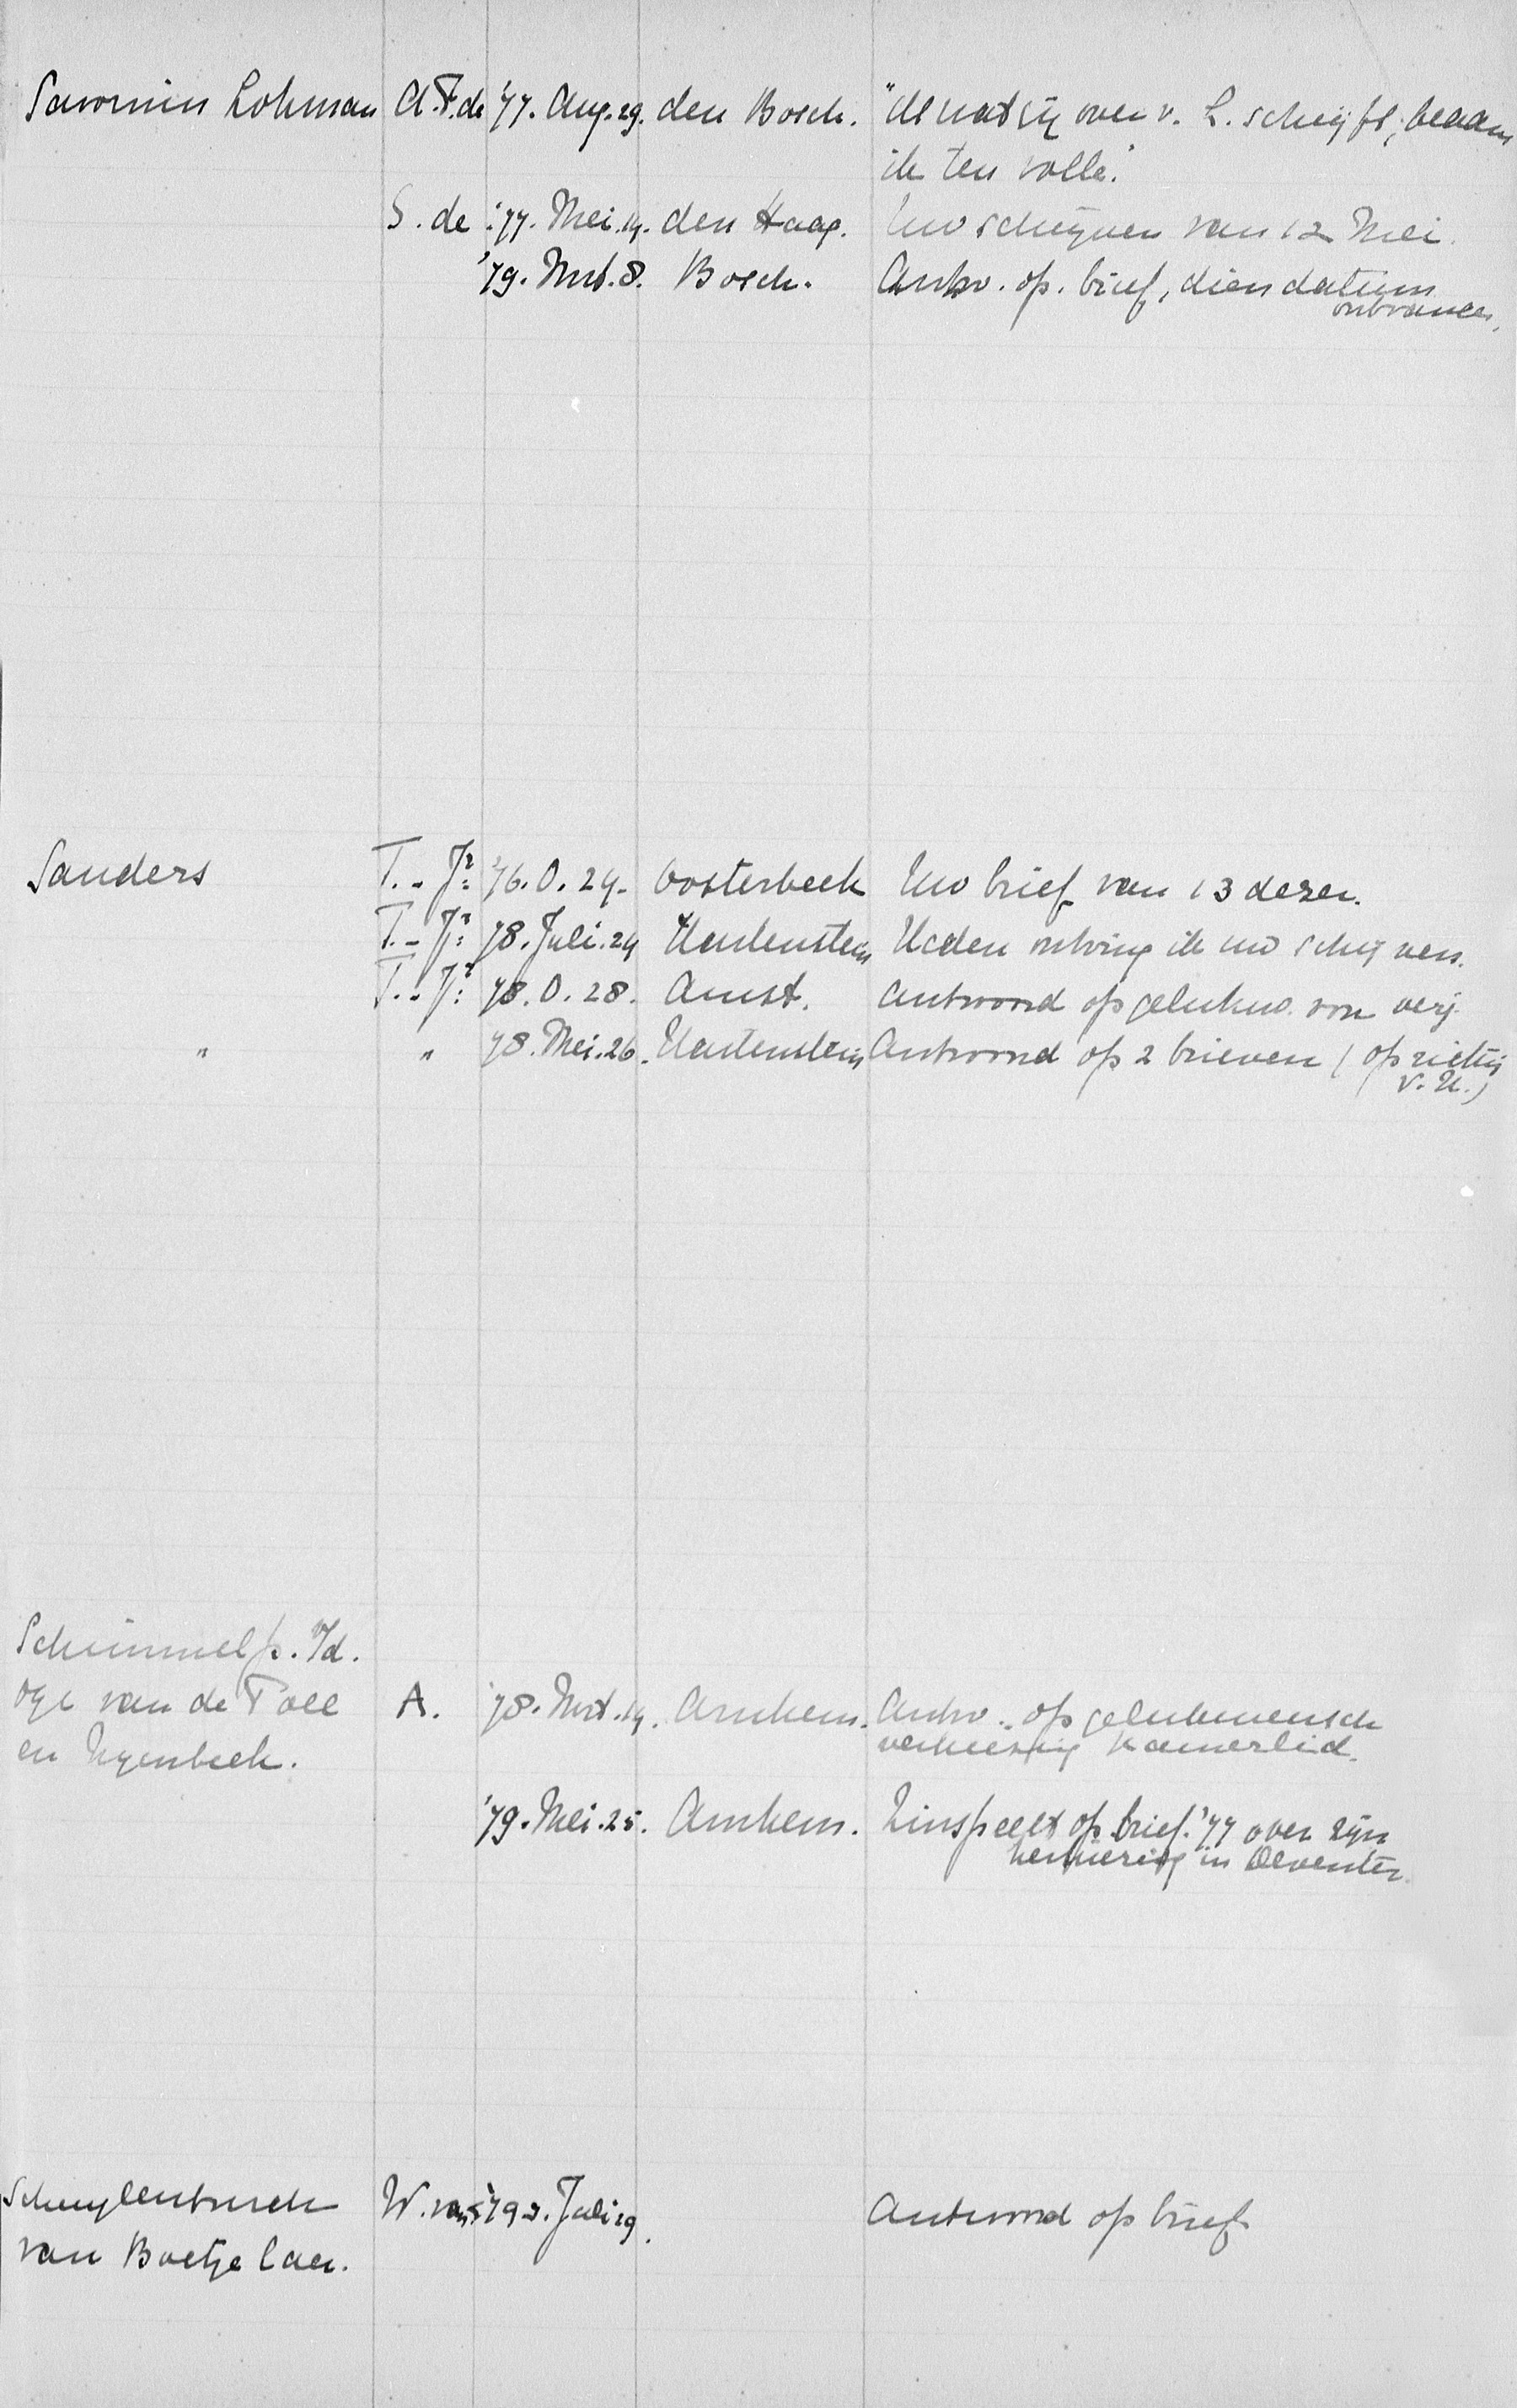 Savornin Lohman A.F. de '77. Aug. 29. den Bosch. "Al wat gij over v. L. schrijft, beaam
ik ten volle."
S. de '77. Mei. 14. den Haag. Uw schrijven van 12 Mei.
'79. Mrt. 8. Bosch. Antw. op. brief, dien datum
ontvangen.
Sanders T. - Jr: '76. O. 24. Oosterbeek Uw brief van 13 dezer.
T. - Jr: 78. Juli. 24 Hartenstein Heden ontving ik uw schrijven.
T. - Jr: 78. O. 28. Amst. Antwoord op gelukw. von verj.
" " 78. Mei. 26. Hartenstein Antwoord op 2 brieven (oprichtig
V. U.)
Schimmelp. v/d.
Oye van de Poll A. '78. Mrt. 14. Arnhem. Antw. op gelukwensch
en Nyenbeek. verkiezing Kamerlid.
'79. Mei. 25. Arnhem. Zinspeelt op brief. '77 over zijn
in Deventer.
Schuylenburch W. van '79. Juli 29. Antwoord op brief
van Boetzelaer.